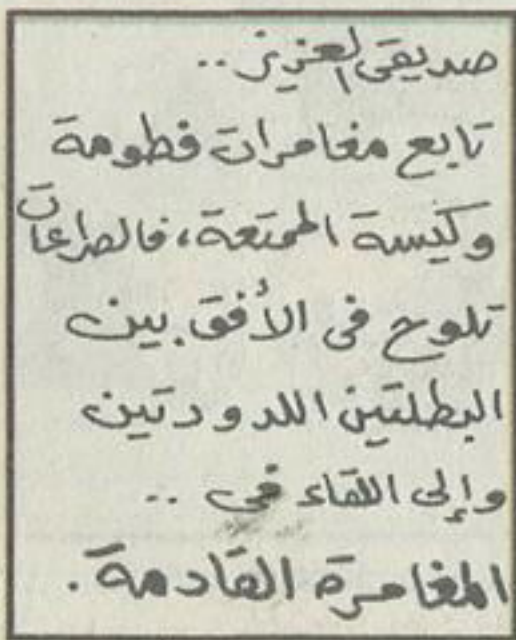 صديقى العزيز ..
تابع مغامرات فطومة
وكيسة الممتعة، فالصراعات
تلوح فى الأفق بين
البطلتين اللدودتين
وإلى اللقاء فى ..
المغامرة القادمة.